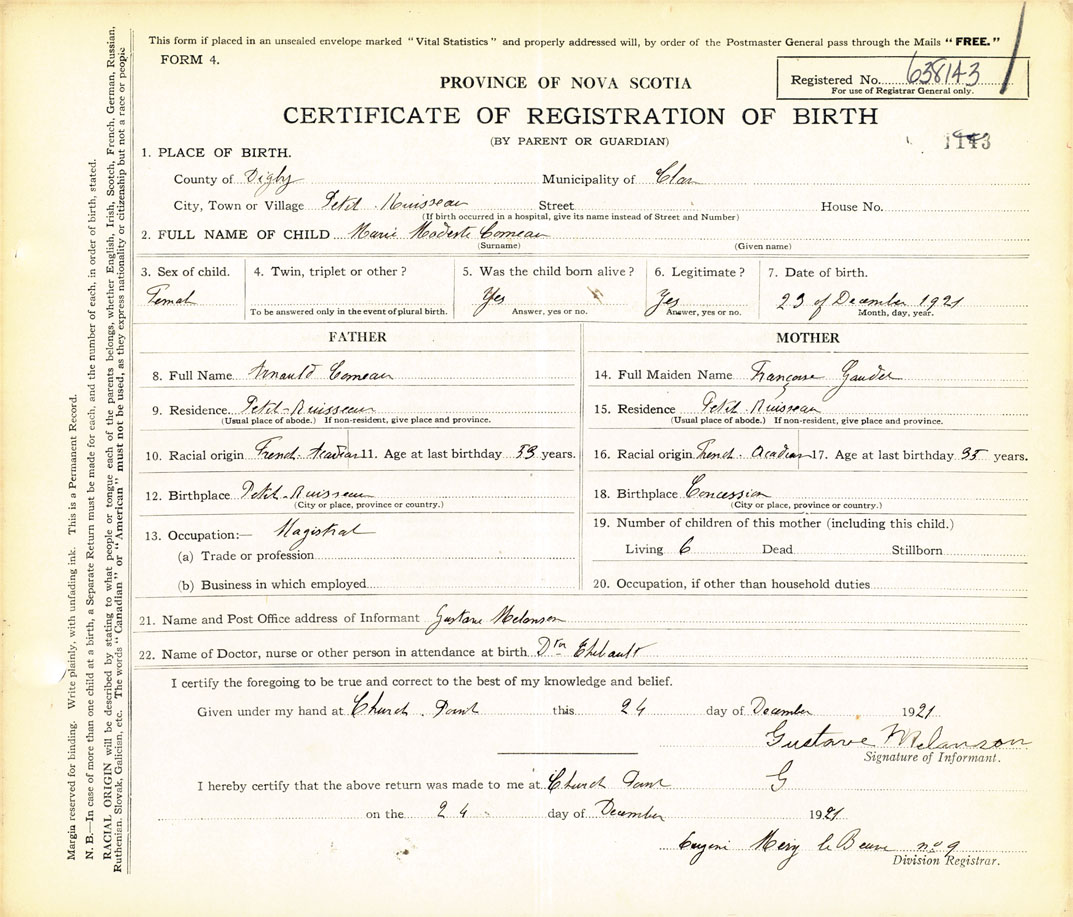 This form if placed in an unsealed envelope marked "Vital Statistics" and properly addressed will, by order of the Postmaster General pass through the Mails "FREE."
FORM 4.
Registered No. 638143
For use of Registrar General only.
PROVINCE OF NOVA SCOTIA
CERTIFICATE OF REGISTRATION OF BIRTH
(BY PARENT OR GUARDIAN)
1143
1. PLACE OF BIRTH.
County of Digby Municipality of Clare
City, Town or Village Petit Ruisseau Street House No.
(If birth occurred in a hospital, give its name instead of Street and Number)
2. FULL NAME OF CHILD Marie Modeste Comeau
(Surname) (Given name)
3. Sex of child. 4. Twin, triplet or other? 5. Was the child born alive? 6. Legitimate? 7. Date of birth.
Femal Yes Yes 23 of December 1921
To be answered only in the event of plural birth. Answer, yes or no. Answer, yes or no. Month, day, year.
FATHER
8. Full Name Comeau
9. Residence Petit-Ruisseau
(Usual place of abode.) If non-resident, give place and province.
10. Racial origin French-Acadian 11. Age at last birthday 53 years.
12. Birthplace Petit-Ruisseau
(City or place, province or country.)
13. Occupation:— Magistrat
(a) Trade or profession
(b) Business in which employed
MOTHER
14. Full Maiden Name Françoise Gaudet
15. Residence Petit Ruisseau
(Usual place of abode.) If non-resident, give place and province.
16. Racial origin French-Acadian 17. Age at last birthday 35 years.
18. Birthplace Concession
(City or place, province or country.)
19. Number of children of this mother (including this child.)
Living 6 Dead Stillborn
20. Occupation, if other than household duties
21. Name and Post Office address of Informant Gustave Melanson
22. Name of Doctor, nurse or other person in attendance at birth Thibault
I certify the foregoing to be true and correct to the best of my knowledge and belief.
Given under my hand at Church Point this 24 day of December 1921
Gustave Melanson
Signature of Informant.
I hereby certify that the above return was made to me at Church Point G
on the 24 day of December 1921
no 9
Division Registrar.
Margin reserved for binding. Write plainly, with unfading ink. This is a Permanent Record.
N. B.—In case of more than one child at a birth, a Separate Return must be made for each, and the number of each, in order of birth, stated.
RACIAL ORIGIN will be described by stating to what people or tongue each of the parents belongs, whether English, Irish, Scotch, French, German, Russian,
Ruthenian, Slovak, Galician, etc. The words "Canadian" or "American" must not be used, as they express nationality or citizenship but not a race or people